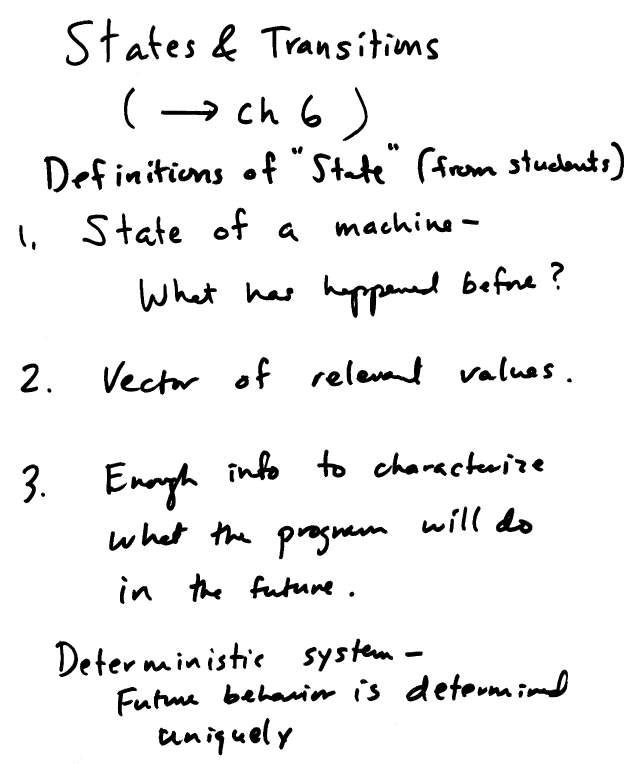 States & Transitions
( → ch 6 )
Definitions of "State" (from students)
1. State of a machine -
What has happened before?
2. Vector of relevant values.
3. Enough info to characterize
what the program will do
in the future.
Deterministic system -
Future behavior is determined
uniquely